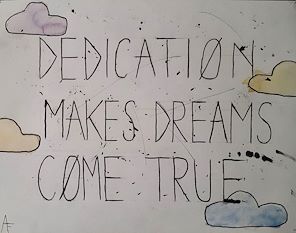 DEDICATIØN
MAKES DREAMS
CØME TRUE